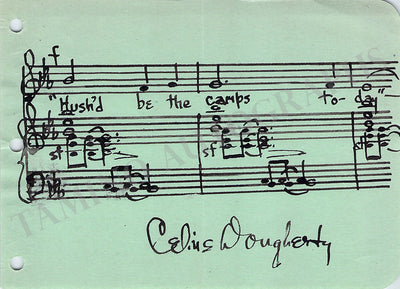 f
"Hush'd be the camps to-day
sf sf
Celius Dougherty
TAMINO AUTOGRAPHS